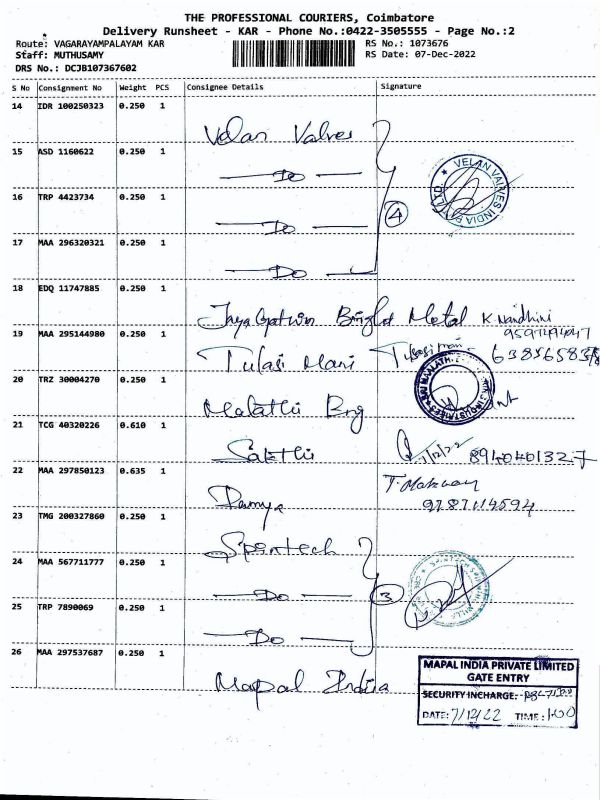 THE PROFESSIONAL COURIERS, Coimbatore
Delivery Runsheet - KAR - Phone No.:0422-3505555 - Page No.:2
Route: VAGARAYAMPALAYAM KAR
RS No.: 1073676
Staff: MUTHUSAMY
RS Date: 07-Dec-2022
DRS No.: DCJB107367602
S No Consignment No Weight PCS Consignee Details Signature
14 IDR 100250323 0.250 1
Velan Valves
15 ASD 1160622 0.250 1
Do
VELAN VALVES INDIA PVT LTD.
16 TRP 4423734 0.250 1
4
Do
17 MAA 296320321 0.250 1
Do
18 EDQ 11747885 0.250 1
Bright Metal K Nandhini
19 MAA 295144980 0.250 1
Tulasi Mani Tulasimani
20 TRZ 30004270 0.250 1
Malathi Eng
21 TCG 40320226 0.610 1
Sakthi 7/12/22 8940401327
22 MAA 297850123 0.635 1
Ramya
23 TMG 200327860 0.250 1
9787114594
Spintech
24 MAA 567711777 0.250 1
Do
3
25 TRP 7890069 0.250 1
Do
26 MAA 297537687 0.250 1
Mapal India
MAPAL INDIA PRIVATE LIMITED
GATE ENTRY
SECURITY INCHARGE:
DATE: 7/12/22 TIME: 1:00